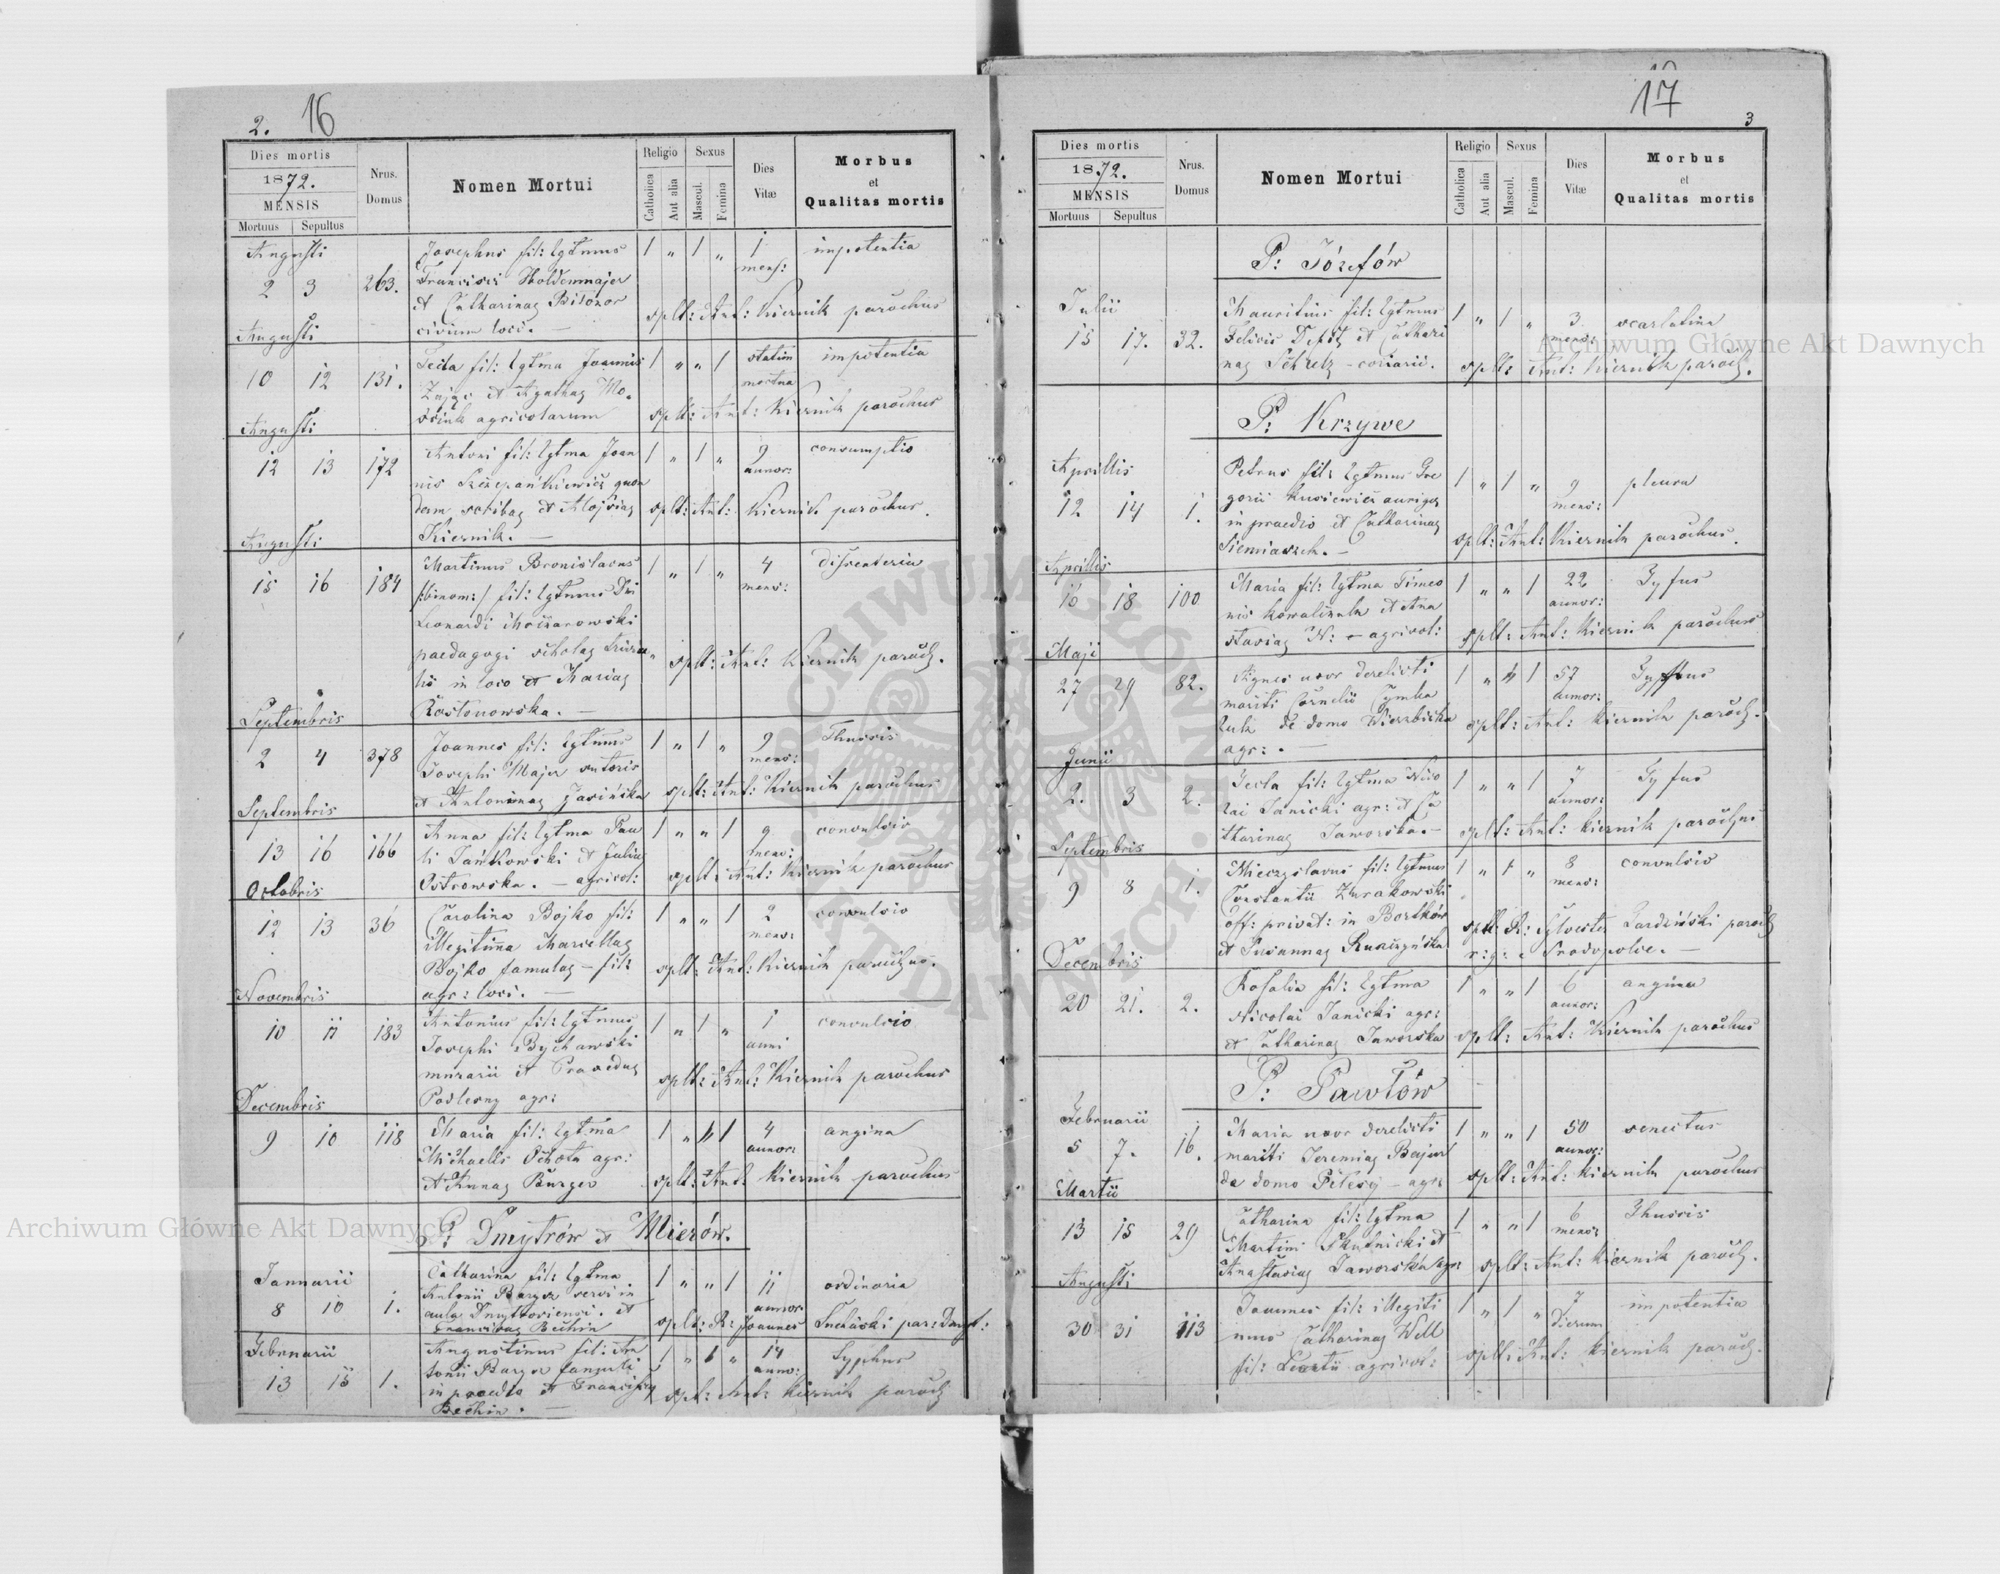 2. 16
Dies mortis
1872.
MENSIS
Mortuus Sepultus
Nrus. Domus
Nomen Mortui
Religio
Catholica
Aut alia
Sexus
Mascul.
Femina
Dies Vitæ
Morbus
et
Qualitas mortis
Augusti
2 3 263. Josephus fil: lgtmus 1 " 1 " 1 mens: impotentia
Francisci Holdenmajer
et Catharinae Bilozor splt: Ant: Kiernik parochus
civium loci. —
Augusti
10 12 131. Tecla fil: lgtma Joannis 1 " " 1 statim mortua impotentia
Zając et Agathae Mo-
sink agricolarum splt: Ant: Kiernik parochus
Augusti
12 13 172 Antoni fil: lgtma Joan 1 " 1 " 9 annor: consumptio
nis Szczepańkiewicz quon
dam scribae et Alojsiae splt: Ant: Kiernik parochus.
Kiernik. —
Augusti
15 16 184 Martinus Bronislaus 1 " 1 " 4 mens: dissenteria
/:binom:/ fil: lgtmus Dni
Leonardi Moszarowski
paedagogi scholae trivia splt: Ant: Kiernik paroch.
lis in loco et Mariae
Rostonowska. —
Septembris
2 4 378 Joannes fil: lgtmus 1 " 1 " 9 mens: Thussis
Josephi Majer sutoris
et Antoninae Jasińska splt: Ant: Kiernik parochus
Septembris
13 16 166 Anna fil: lgtma Pau 1 " " 1 9 mens: convulsio
li Jańkowski et Juliae
Ostrowska. — agricol: splt: Ant: Kiernik parochus
Octobris
12 13 36 Carolina Bojko fil: 1 " " 1 2 mens: convulsio
illegitima Marcellae
Bojko famulae — fil: splt: Ant: Kiernik parochus.
agr: loci. —
Novembris
10 11 183 Antonius fil: lgtmus 1 " 1 " 1 anni convulsio
Josephi Bychawski
murarii et Praxedae splt: Ant: Kiernik parochus
Podlesny agr:
Decembris
9 10 118 Maria fil: lgtma 1 " " 1 4 annor: angina
Michaelis Ochota agr:
et Annae Burger splt: Ant: Kiernik parochus
P: Dmytrów et Mierów.
Januarii
8 10 1. Catharina fil: lgtma 1 " " 1 11 annor ordinaria
Antonii Barysz servi in
aula Dmytroviensi. et splt: R: Joannes par: Dmyt:
Franciscae Bechin
Februarii
13 15 1. Augustinus fil: An 1 " 1 " 14 anno: Typhus
tonii Barysz famuli
in praedio et Franciscae splt: Ant: Kiernik paroch
Bechin. —
17
3
Dies mortis
1872.
MENSIS
Mortuus Sepultus
Nrus. Domus
Nomen Mortui
Religio
Catholica
Aut alia
Sexus
Mascul.
Femina
Dies Vitæ
Morbus
et
Qualitas mortis
P: Józefów
Julii
15 17. 32. Mauritius fil: lgtmus 1 " 1 " 3 mens: scarlatina
Felicis et Cathari
nae Schretz — coriarii. splt: Ant: Kiernik paroch.
P: Krzywe
Aprillis
12 14 1. Petrus fil: lgtmus Gre 1 " 1 " 9 mens: pleura
gorii Kusiewicz aurigae
in praedio et Catharinae splt: Ant: Kiernik parochus.
Siemiaszek. —
Aprillis
16 18 100 Maria fil: lgtma Simeo 1 " " 1 22 annor: Tyfus
nis Kowaliszuk et Ana
stasiae N: — agricol: splt: Ant: Kiernik parochus
Maji
27 29 82. Agnes uxor derelicti 1 " " 1 57 annor: Tyffus
mariti Cornelii Cymba
luk de domo Wierzbicka splt: Ant: Kiernik paroch.
agr: . —
Junii
2. 3 2. Tecla fil: lgtma Nico 1 " " 1 7 annor: Tyfus
lai Janicki agr: et Ca
tharinae Jaworska. — splt: Ant: Kiernik parochus
Septembris
9 8 1. Mieczyslaus fil: lgtmus 1 " 1 " 8 mens: convulsio
Constantii Żurakowski
off: privat: in Bortków splt: R: Sylvester paroch
et Susannae r: g: Gradopolce. —
Decembris
20 21. 2. Rosalia fil: lgtma 1 " " 1 6 annor: angina
Nicolai Janicki agr:
et Catharinae Jaworska splt: Ant: Kiernik parochus
P: Pawłów
Februarii
5 7. 16. Maria uxor derelicti 1 " " 1 50 annor: senectus
mariti Jeremiae
de domo — agr: splt: Ant: Kiernik parochus
Martii
13 15 29 Catharina fil: lgtma 1 " " 1 6 mens: Thussis
Martini Skutnicki et
Anastasiae Jaworska agr: splt: Ant: Kiernik paroch.
Augusti
30 31 113 Joannes fil: illegiti 1 " 1 " 7 dierum impotentia
mus Catharinae Well
fil: agricol: splt: Ant: Kiernik paroch.
Archiwum Główne Akt Dawnych
Archiwum Główne Akt Dawnych
ARCHIWUM GŁÓWNE AKT DAWNYCH